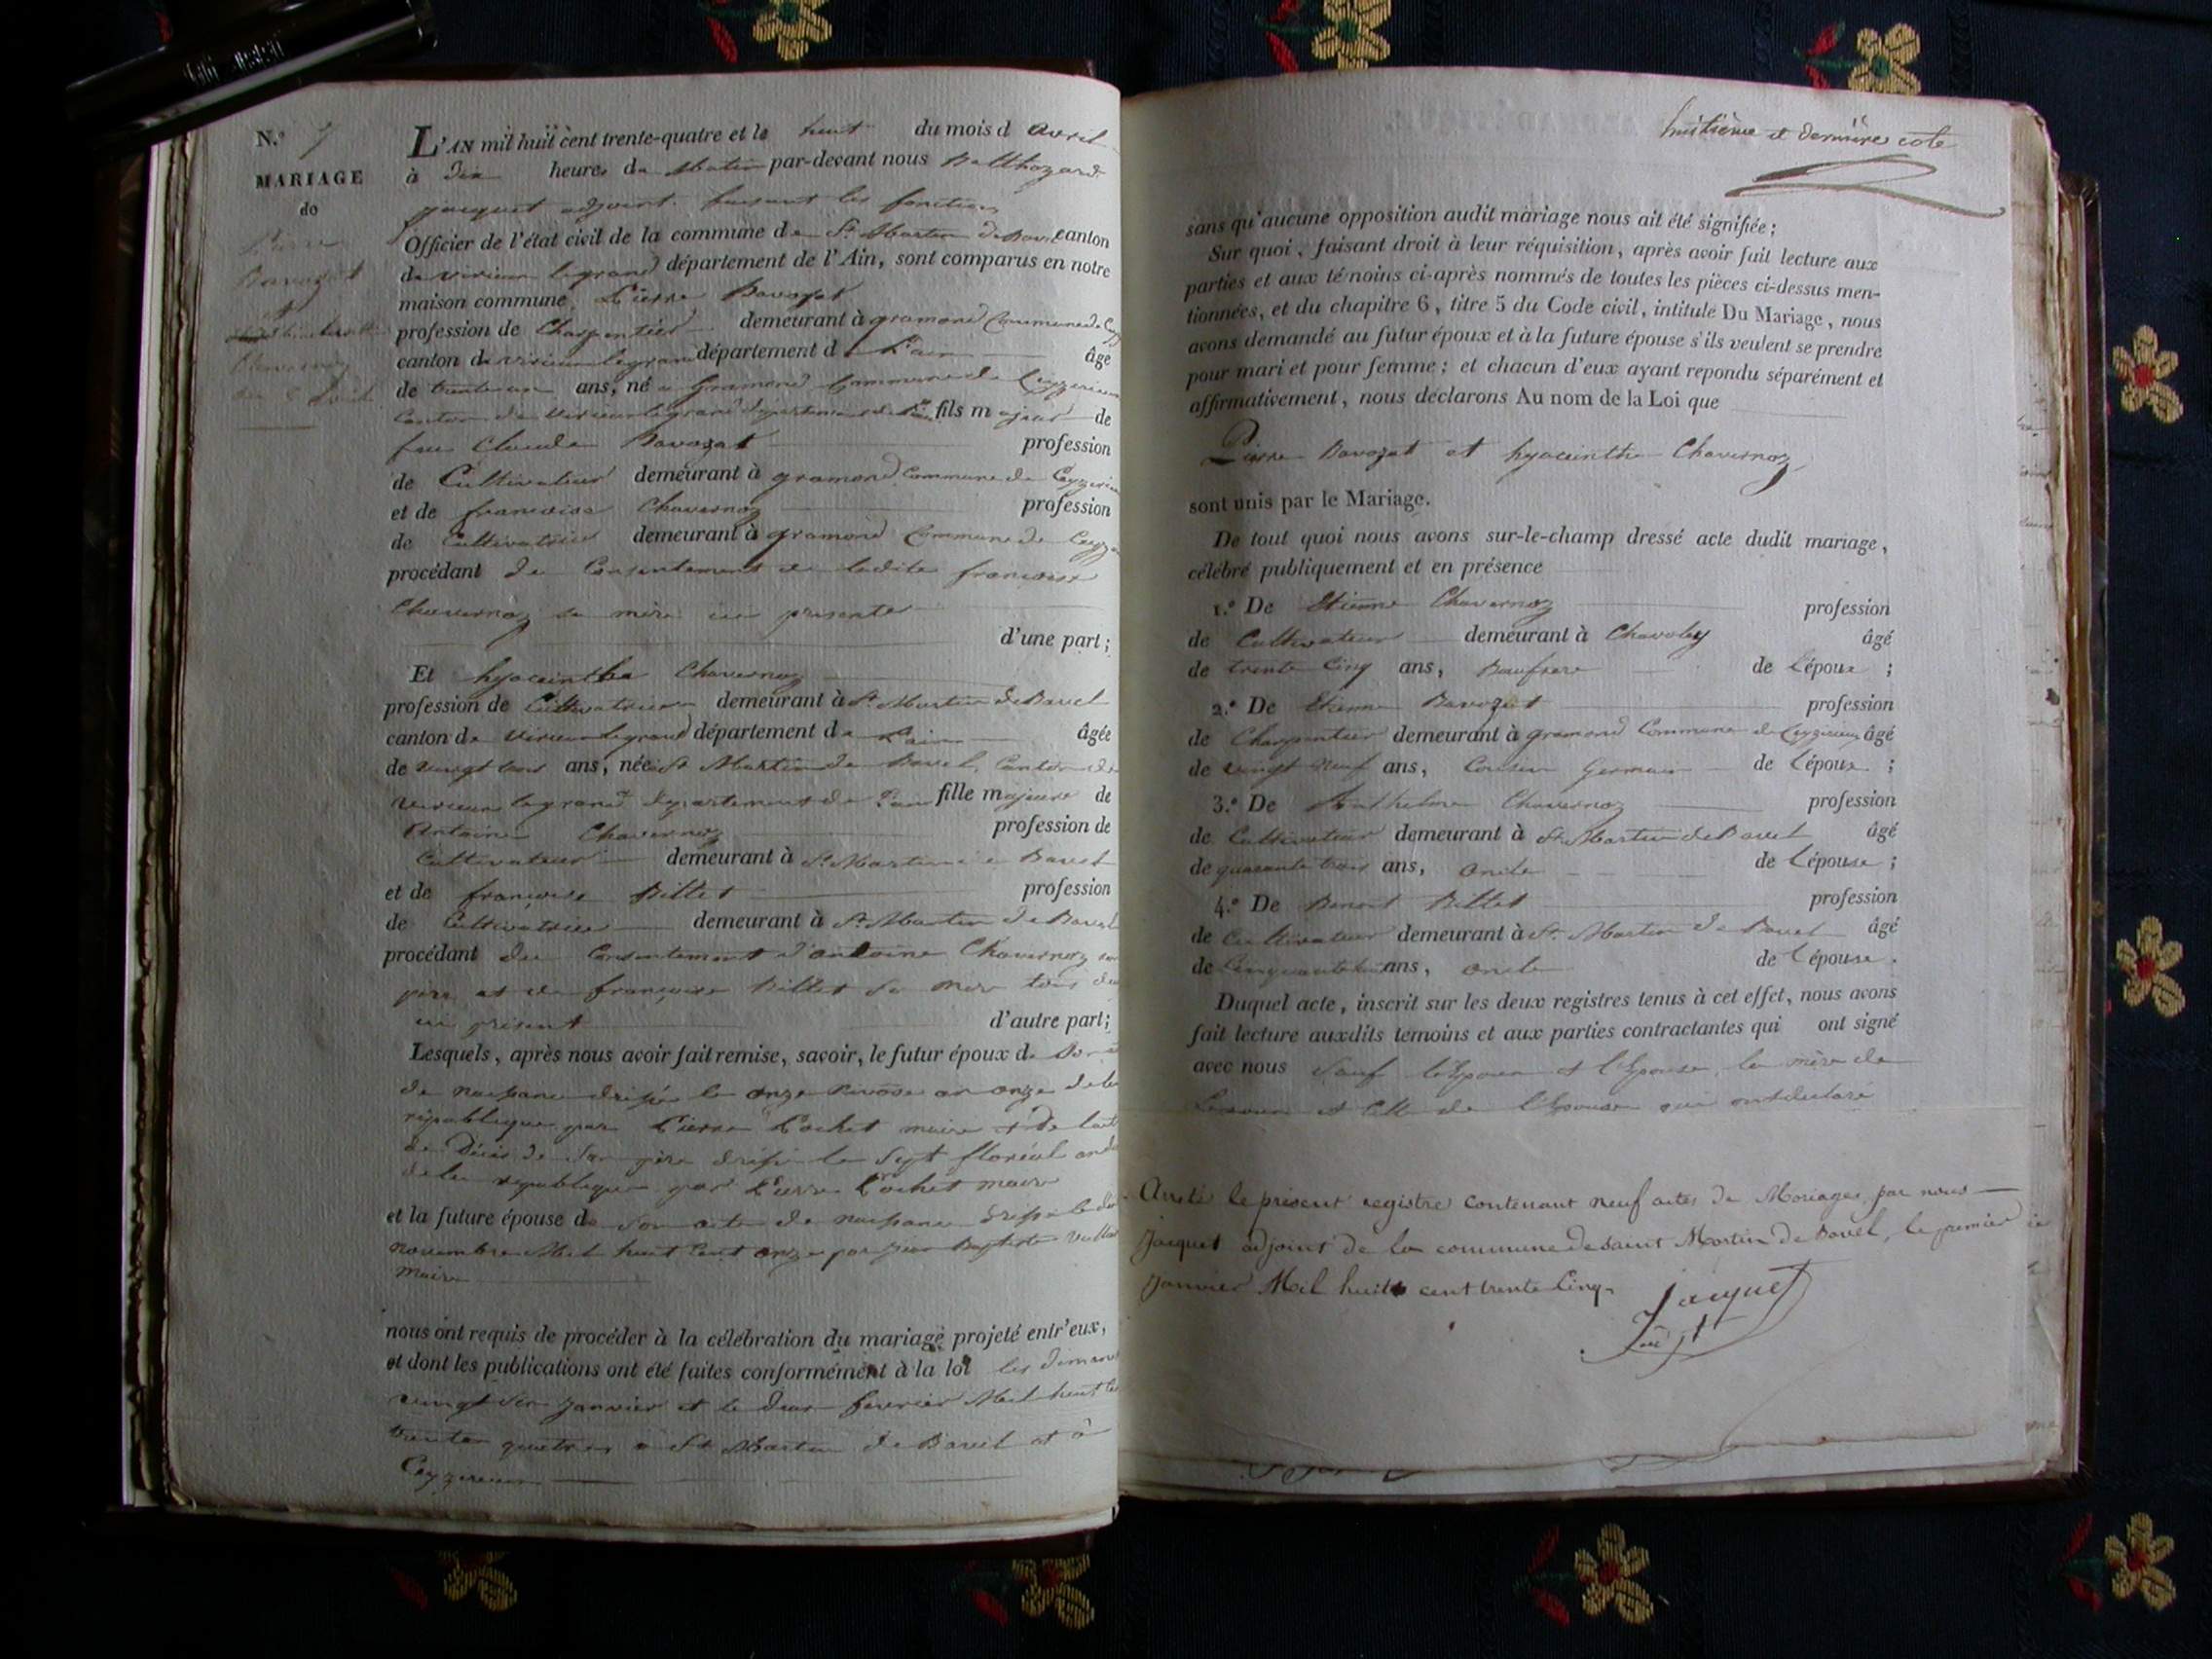 N.° 7
MARIAGE
de
Pierre
Bavozat
et
Chavernoz
L'AN mil huit cent trente-quatre et le huit du mois d avril
à dix heures du Matin par-devant nous Balthazard
jacquet adjoint faisant les fonctions
Officier de l'état civil de la commune de St Martin de Bavel canton
de virieu legrand département de l'Ain, sont comparus en notre
maison commune Pierre Bavozat
profession de Charpentier demeurant à gramond Commune de
canton de virieu legrand département de l'ain âgé
de trente un ans, né à Gramond Commune de Ceyzerieu
Canton de Virieu legrand département de l'ain fils majeur de
feu Claude Bavozat profession
de Cultivateur demeurant à gramond Commune de Ceyzerieu
et de francoise Chavernoz profession
de Cultivatrice demeurant à gramond Commune de
procédant du Consentement de ladite francoise
Chavernoz sa mère ici presente
d'une part;
Et hyacinthe Chavernoz
profession de Cultivatrice demeurant à St Martin de Bavel
canton de Virieu legrand département de l'ain âgée
de vingt trois ans, née à St Martin de Bavel, Canton de
virieu legrand département de l'ain fille majeure de
Antoine Chavernoz profession de
Cultivateur demeurant à St Martin de Bavel
et de françoise Billet profession
de Cultivatrice demeurant à St Martin de Bavel
procédant du Consentement d'antoine Chavernoz son
père et de françoise Billet sa mère tous deux
ici présent d'autre part;
Lesquels, après nous avoir fait remise, savoir, le futur époux de son
de naissance dressé le onze Nivose an onze de la
république par Pierre Cochet maire et de l'acte
de Décès de Son père dressé le Sept floréal an
de la republique par Pierre Cochet maire
et la future épouse de Son acte de naissance dressé le
novembre Mil huit Cent onze par Jean Baptiste
Maire
nous ont requis de procéder à la célébration du mariage projeté entr'eux,
et dont les publications ont été faites conformément à la loi les
vingt Six Janvier et le deux fevrier Mil huit
trente quatre à St Martin de Bavel et à
Ceyzerieu
huitième et dernière cote
sans qu'aucune opposition audit mariage nous ait été signifiée;
Sur quoi, faisant droit à leur réquisition, après avoir fait lecture aux
parties et aux témoins ci-après nommés de toutes les pièces ci-dessus men-
tionnées, et du chapitre 6, titre 5 du Code civil, intitulé Du Mariage, nous
avons demandé au futur époux et à la future épouse s'ils veulent se prendre
pour mari et pour femme; et chacun d'eux ayant repondu séparément et
affirmativement, nous déclarons Au nom de la Loi que
Pierre Bavozat et hyacinthe Chavernoz
sont unis par le Mariage.
De tout quoi nous avons sur-le-champ dressé acte dudit mariage,
célébré publiquement et en présence
1.° De Etienne Chavernoz profession
de Cultivateur demeurant à Chavoley âgé
de trente Cinq ans, Beaufrere de l'époux;
2.° De Etienne Bavozat profession
de Charpentier demeurant à gramond Commune de Ceyzerieu âgé
de vingt neuf ans, Cousin Germain de l'époux;
3.° De Anthelme Chavernoz profession
de Cultivateur demeurant à St Martin de Bavel âgé
de quarante trois ans, oncle de l'épouse;
4.° De Benoit Billet profession
de Cultivateur demeurant à St Martin de Bavel âgé
de ans, oncle de l'épouse.
Duquel acte, inscrit sur les deux registres tenus à cet effet, nous avons
fait lecture auxdits temoins et aux parties contractantes qui ont signé
avec nous Sauf l'Epoux et l'Epouse, la mère de
l'epoux et Celle de l'Epouse qui ont déclaré
Arreté le présent registre contenant neuf actes de Mariages par nous
Jacquet adjoint de la commune de saint Martin de Bavel, le premier
janvier Mil huit cent trente Cinq.
Jacquet
adjt